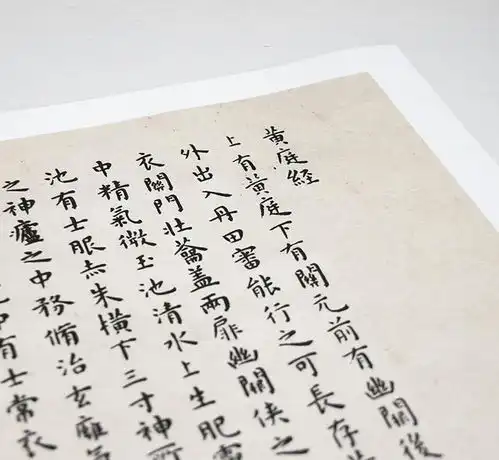 黃庭經
上有黃庭下有關元前有幽關後
外出入丹田審能行之可長存
衣關門壯蘥盖兩扉幽關俠之
中精氣微玉池清水上生肥
池有士服赤朱橫下三寸神所
之神廬之中務脩治玄
中有士常衣